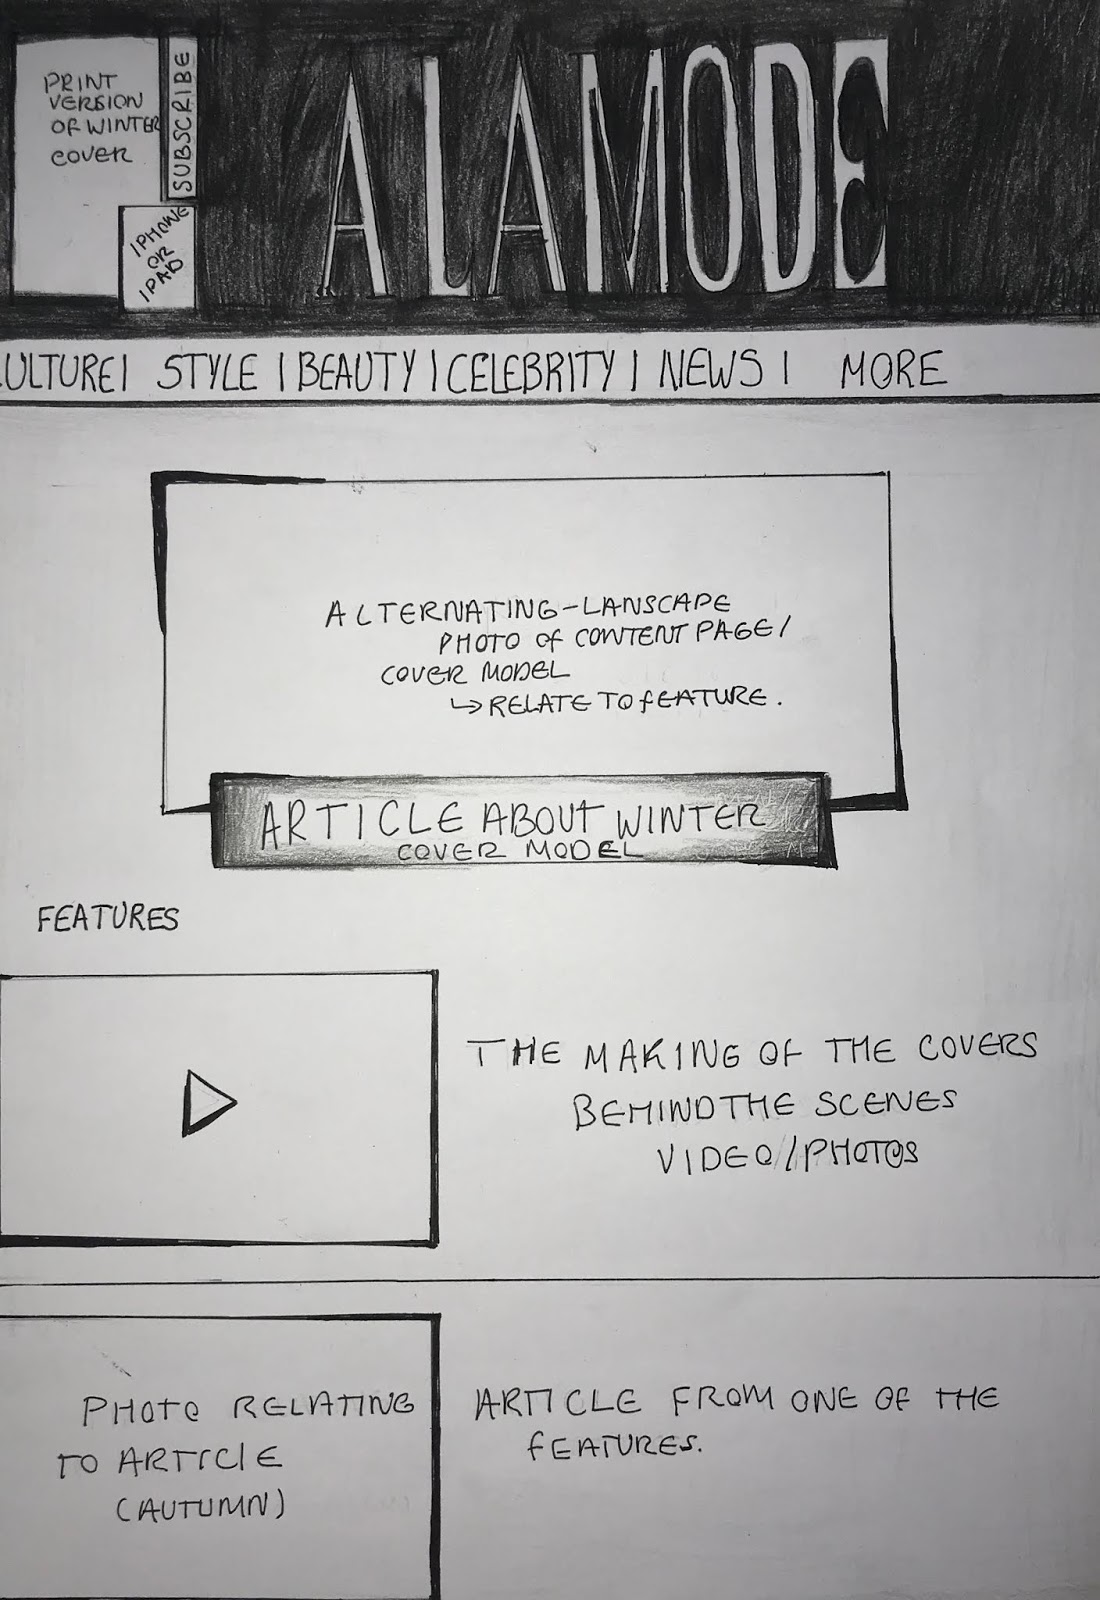 PRINT
VERSION
OF WINTER
COVER
SUBSCRIBE
IPHONE
OR
IPAD
ALAMODE
CULTURE| STYLE | BEAUTY | CELEBRITY | NEWS | MORE
ALTERNATING-LANSCAPE
PHOTO OF CONTENT PAGE/
COVER MODEL
↳ RELATE TO FEATURE.
ARTICLE ABOUT WINTER
COVER MODEL
FEATURES
THE MAKING OF THE COVERS
BEHIND THE SCENES
VIDEO/PHOTOS
PHOTO RELATING
TO ARTICLE
(AUTUMN)
ARTICLE FROM ONE OF THE
FEATURES.